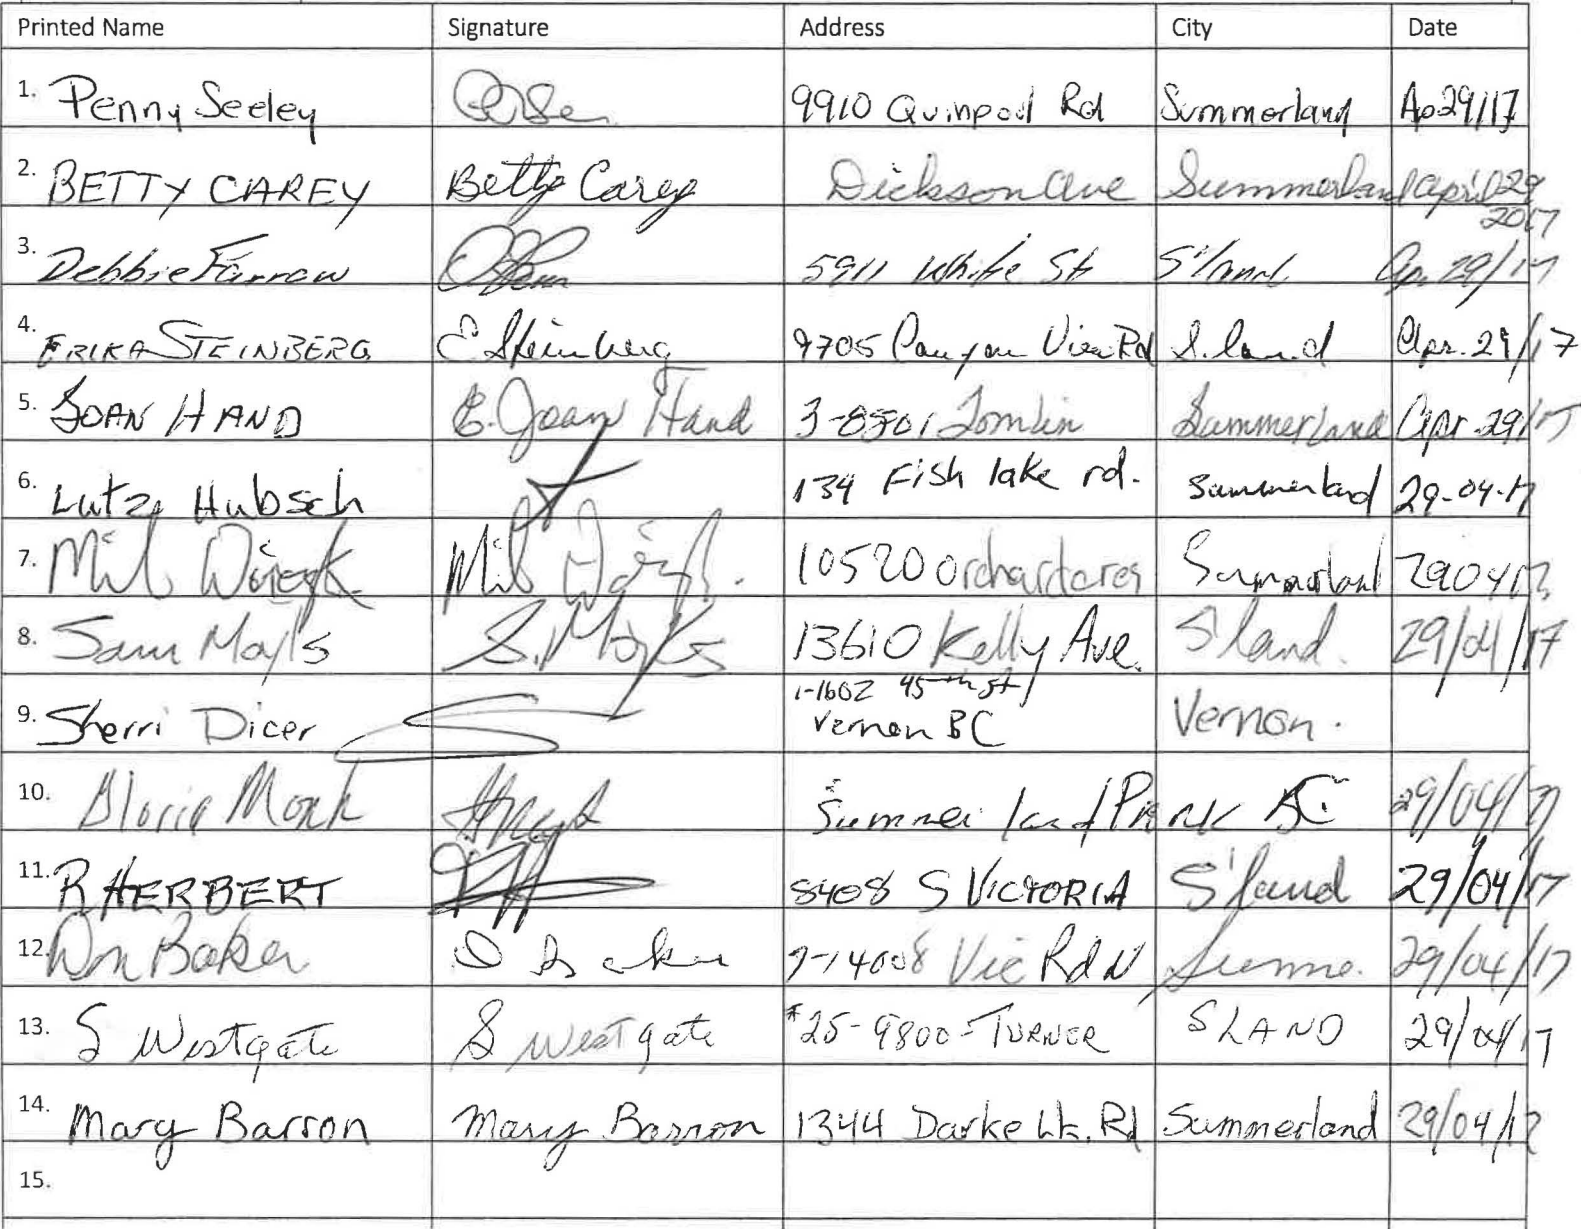 Printed Name Signature Address City Date
1. Penny Seeley 9910 Quinpool Rd Summerland Ap 29/17
2. BETTY CAREY Betty Carey Dickson Ave Summerland April 29
2017
3. Debbie Farrow 5911 White St S'land Ap. 29/17
4. ERIKA STEINBERG E. Steinberg 9705 Canyon View Rd S.land Apr. 29/17
5. JOAN HAND E. Joan Hand Tomlin Summerland Apr. 29/17
6. Lutz Hubsch 134 Fish lake rd. Summerland 29-04-17
7. Mil 10520 Summerland 290417
8. Sam S. 13610 Kelly Ave. S'land. 29/04/17
1-1602 45th St
9. Sherri Dicer Vernon BC Vernon.
10. Gloria Monk Summerland BC 29/04/17
11. R HERBERT 8408 S VICTORIA S'land 29/04/17
12. Don Baker D Baker Vic Rd N Summe. 29/04/17
13. S Westgate S Westgate #25-9800-TURNER SLAND 29/04/17
14. Mary Barron Mary Barron 1344 Darke Lk. Rd Summerland 29/04/17
15.